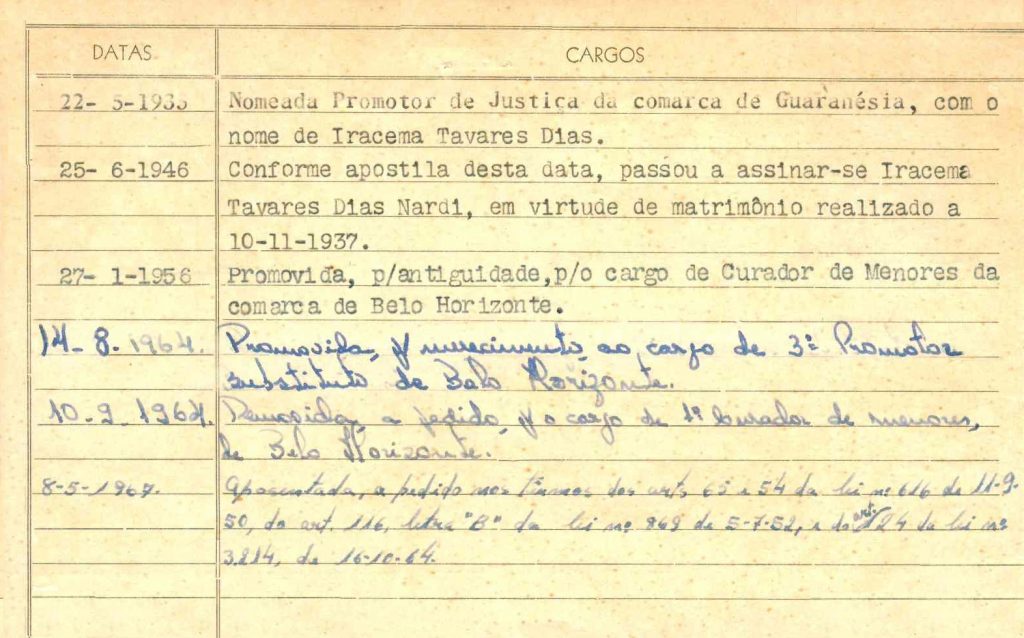 DATAS CARGOS
22- 5-1933 Nomeada Promotor de Justiça da comarca de Guaranésia, com o
nome de Iracema Tavares Dias.
25- 6-1946 Conforme apostila desta data, passou a assinar-se Iracema
Tavares Dias Nardi, em virtude de matrimônio realizado a
10-11-1937.
27- 1-1956 Promovida, p/antiguidade,p/o cargo de Curador de Menores da
comarca de Belo Horizonte.
14- 8- 1964. Promovida, p/ merecimento, ao cargo de 3º Promotor
substituto de Belo Horizonte.
10-9-1964. Removida, a pedido, p/ o cargo de 1º Curador de menores,
de Belo Horizonte.
8-5-1967. Aposentada, a pedido nos termos dos arts 65 e 54 da lei nº 616 de 11-9-
50, do art. 116, letra "B" da lei nº 869 de 5-7-52, e do art. 124 da lei nº
3.214, de 16-10-64.